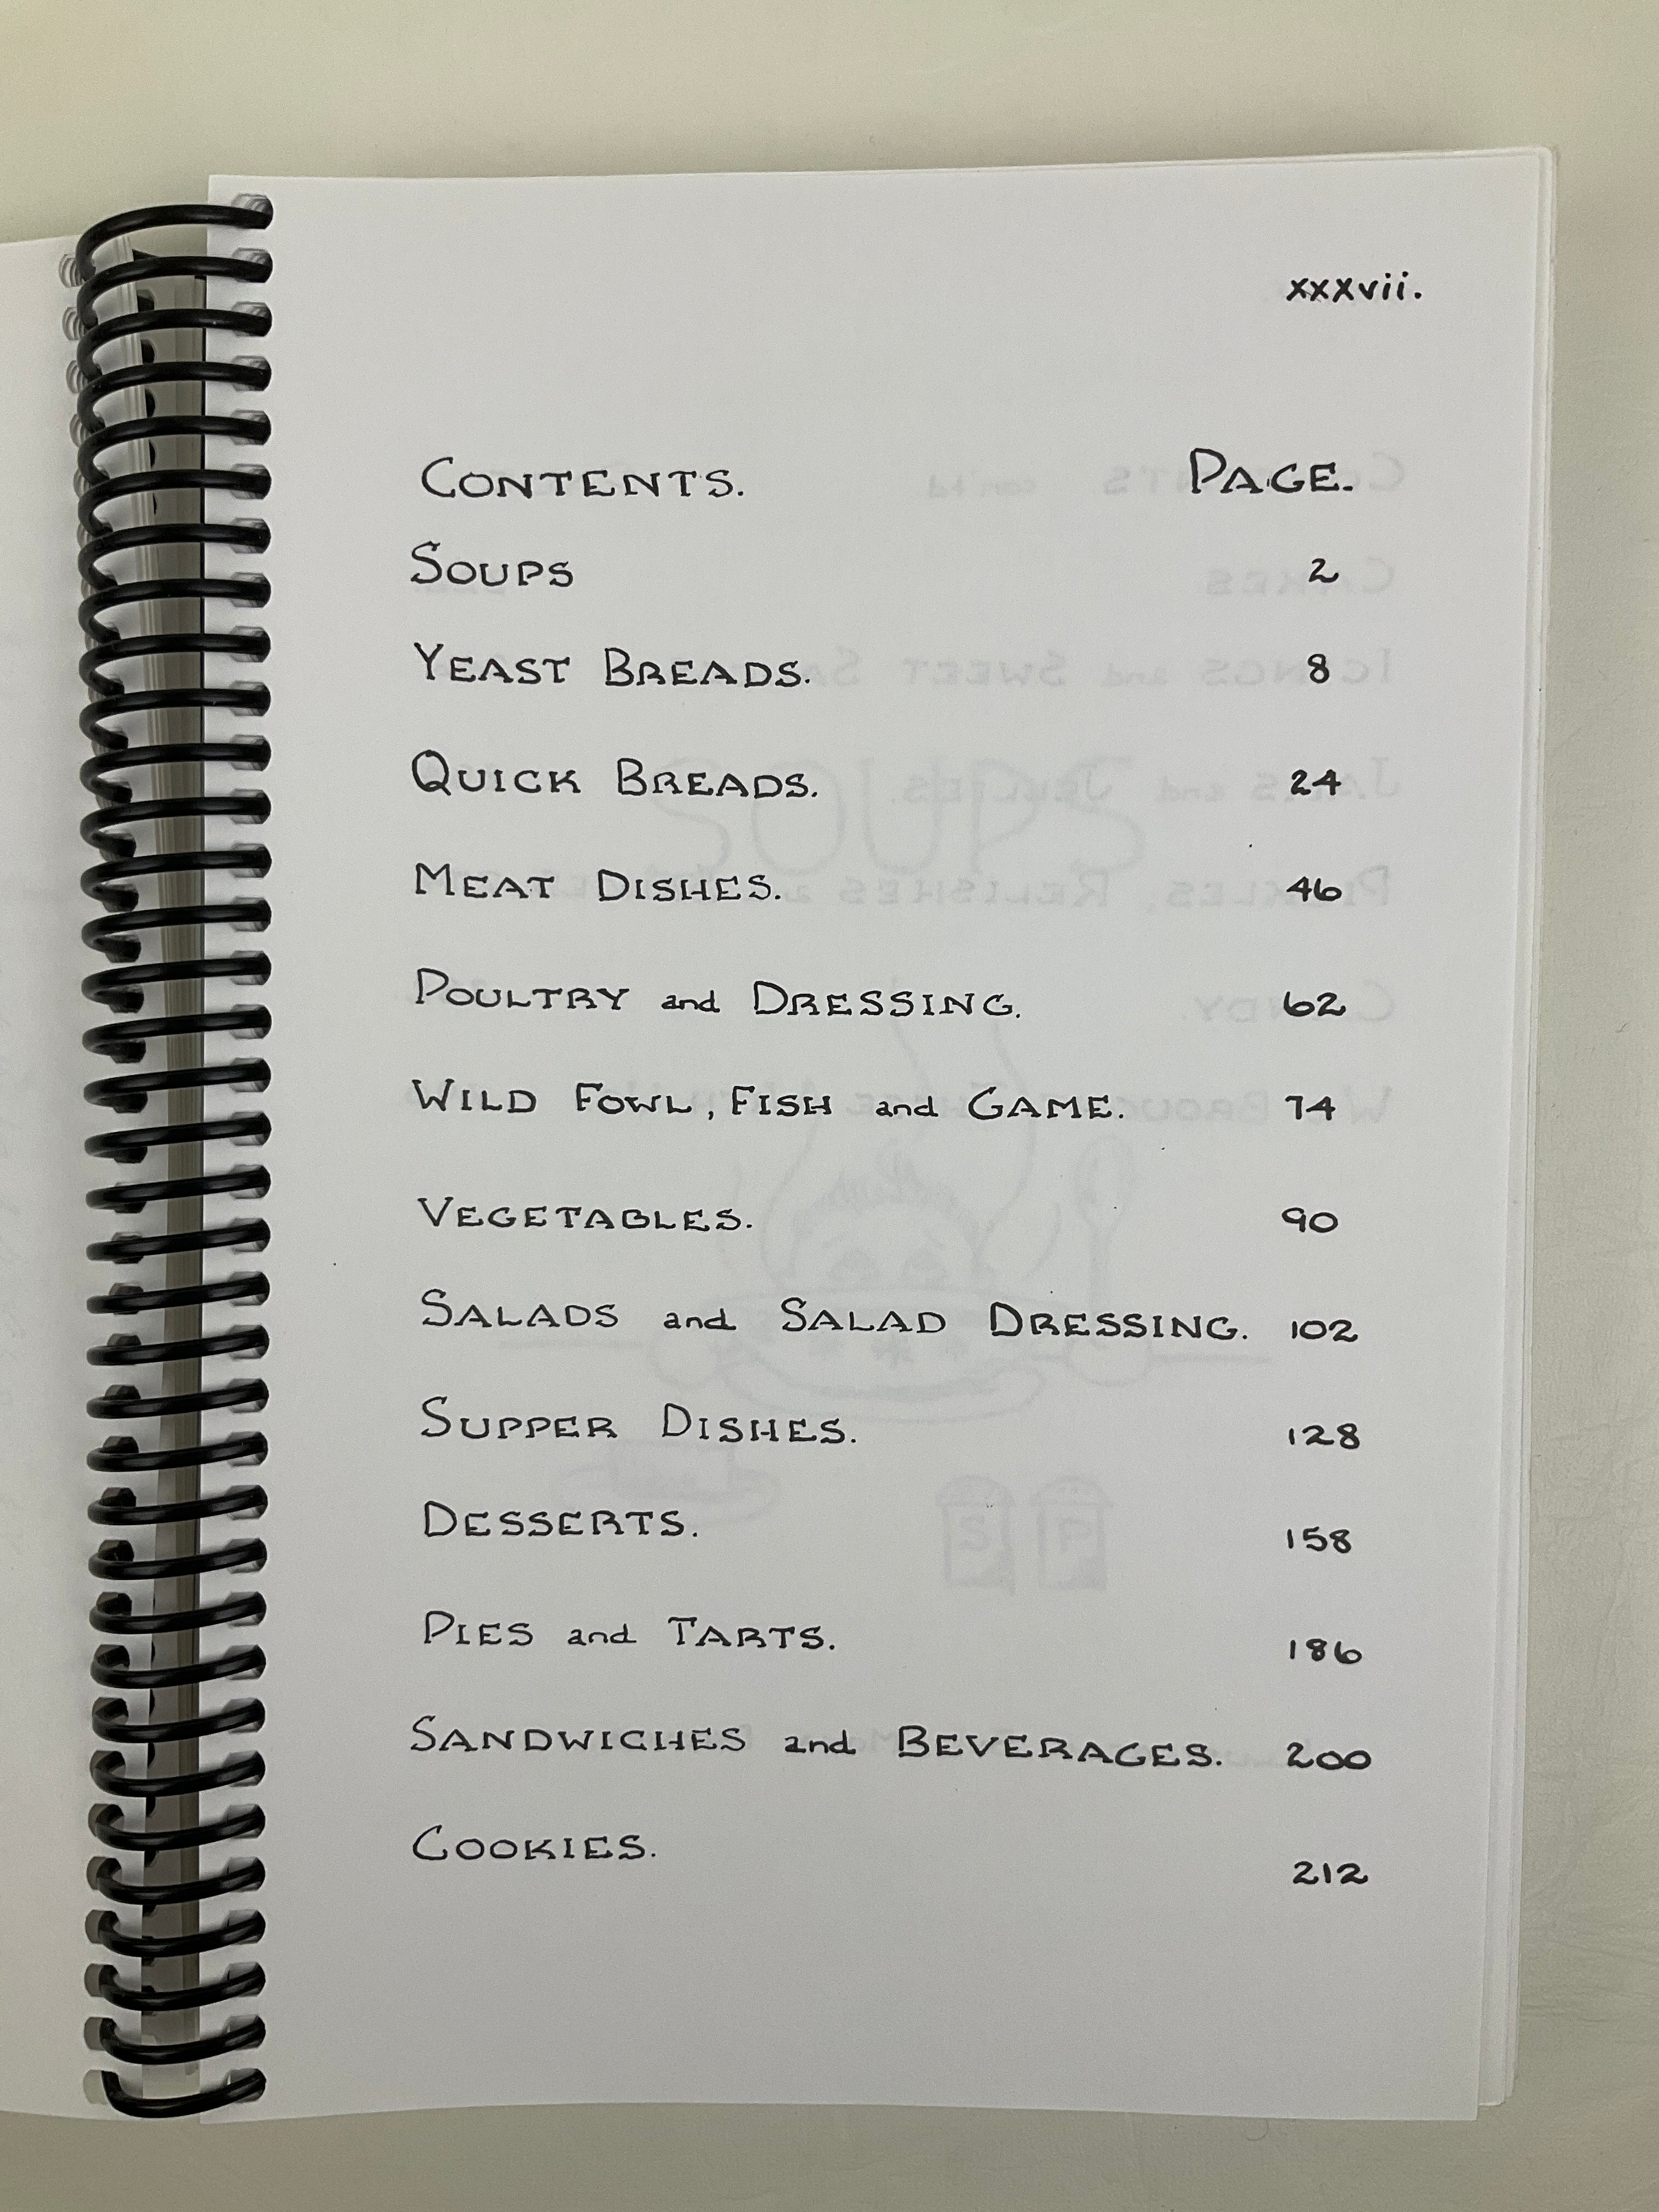 xxxvii.
CONTENTS. PAGE.
SOUPS 2
YEAST BREADS. 8
QUICK BREADS. 24
MEAT DISHES. 46
POULTRY and DRESSING. 62
WILD FOWL, FISH and GAME. 74
VEGETABLES. 90
SALADS and SALAD DRESSING. 102
SUPPER DISHES. 128
DESSERTS. 158
PIES and TARTS. 186
SANDWICHES and BEVERAGES. 200
COOKIES. 212